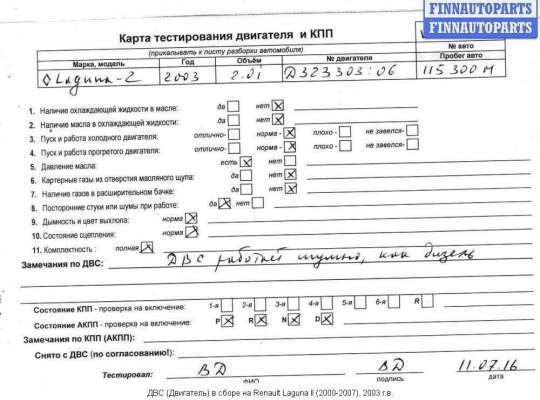 FINNAUTOPARTS
FINNAUTOPARTS
Карта тестирования двигателя и КПП
(прикалывать к листу разборки автомобиля)
№ авто
Марка, модель Год Объём № двигателя Пробег авто
Laguna-2 2003 2.0i D323303:06 115300 м
1. Наличие охлаждающей жидкости в масле: да нет X
2. Наличие масла в охлаждающей жидкости: да нет X
3. Пуск и работа холодного двигателя: отлично- норма- X плохо- не завелся-
4. Пуск и работа прогретого двигателя: отлично- норма- X плохо - не завелся-
5. Давление масла: есть X нет
6. Картерные газы из отверстия масляного щупа: да нет X
7. Наличие газов в расширительном бачке: да нет X
8. Посторонние стуки или шумы при работе: да X нет
9. Дымность и цвет выхлопа: норма X
10. Состояние сцепления: норма X
11. Комплектность : полная X
Замечания по ДВС: ДВС работает шумно, как дизель
Состояние КПП - проверка на включение: 1-я 2-я 3-я 4-я 5-я 6-я R
Состояние АКПП - проверка на включение: P X R X N X D X
Замечания по КПП (АКПП):
Снято с ДВС (по согласованию!):
Тестировал: ВД ВД 11.07.16
ФИО подпись дата
ДВС (Двигатель) в сборе на Renault Laguna II (2000-2007), 2003 г.в.